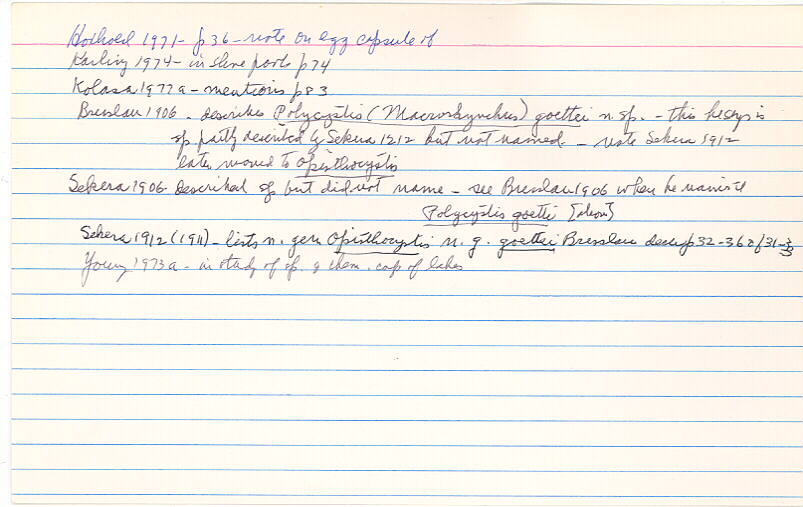 Hoxhold 1971 - p 36 - note on egg capsule of
Karling 1974 - in shore pools p 74
Kolasa 1977a - mentions p 83
Bresslau 1906 - describes Polycystis (Macrorhynchus) goettei n. sp. - this he says is
sp. partly described by Sekera 1912 but not named - note Sekera 1912
later moved to Opisthocystis
Sekera 1906 - described sp but did not name - see Bresslau 1906 when he named it
Polycystis goettei
Sekera 1912 (1911) - lists n. gen Opisthocystis n. g. goettei Bresslau p 32-36 & f 31-33
Young 1973a - in study of sp. & chem. comp of lakes